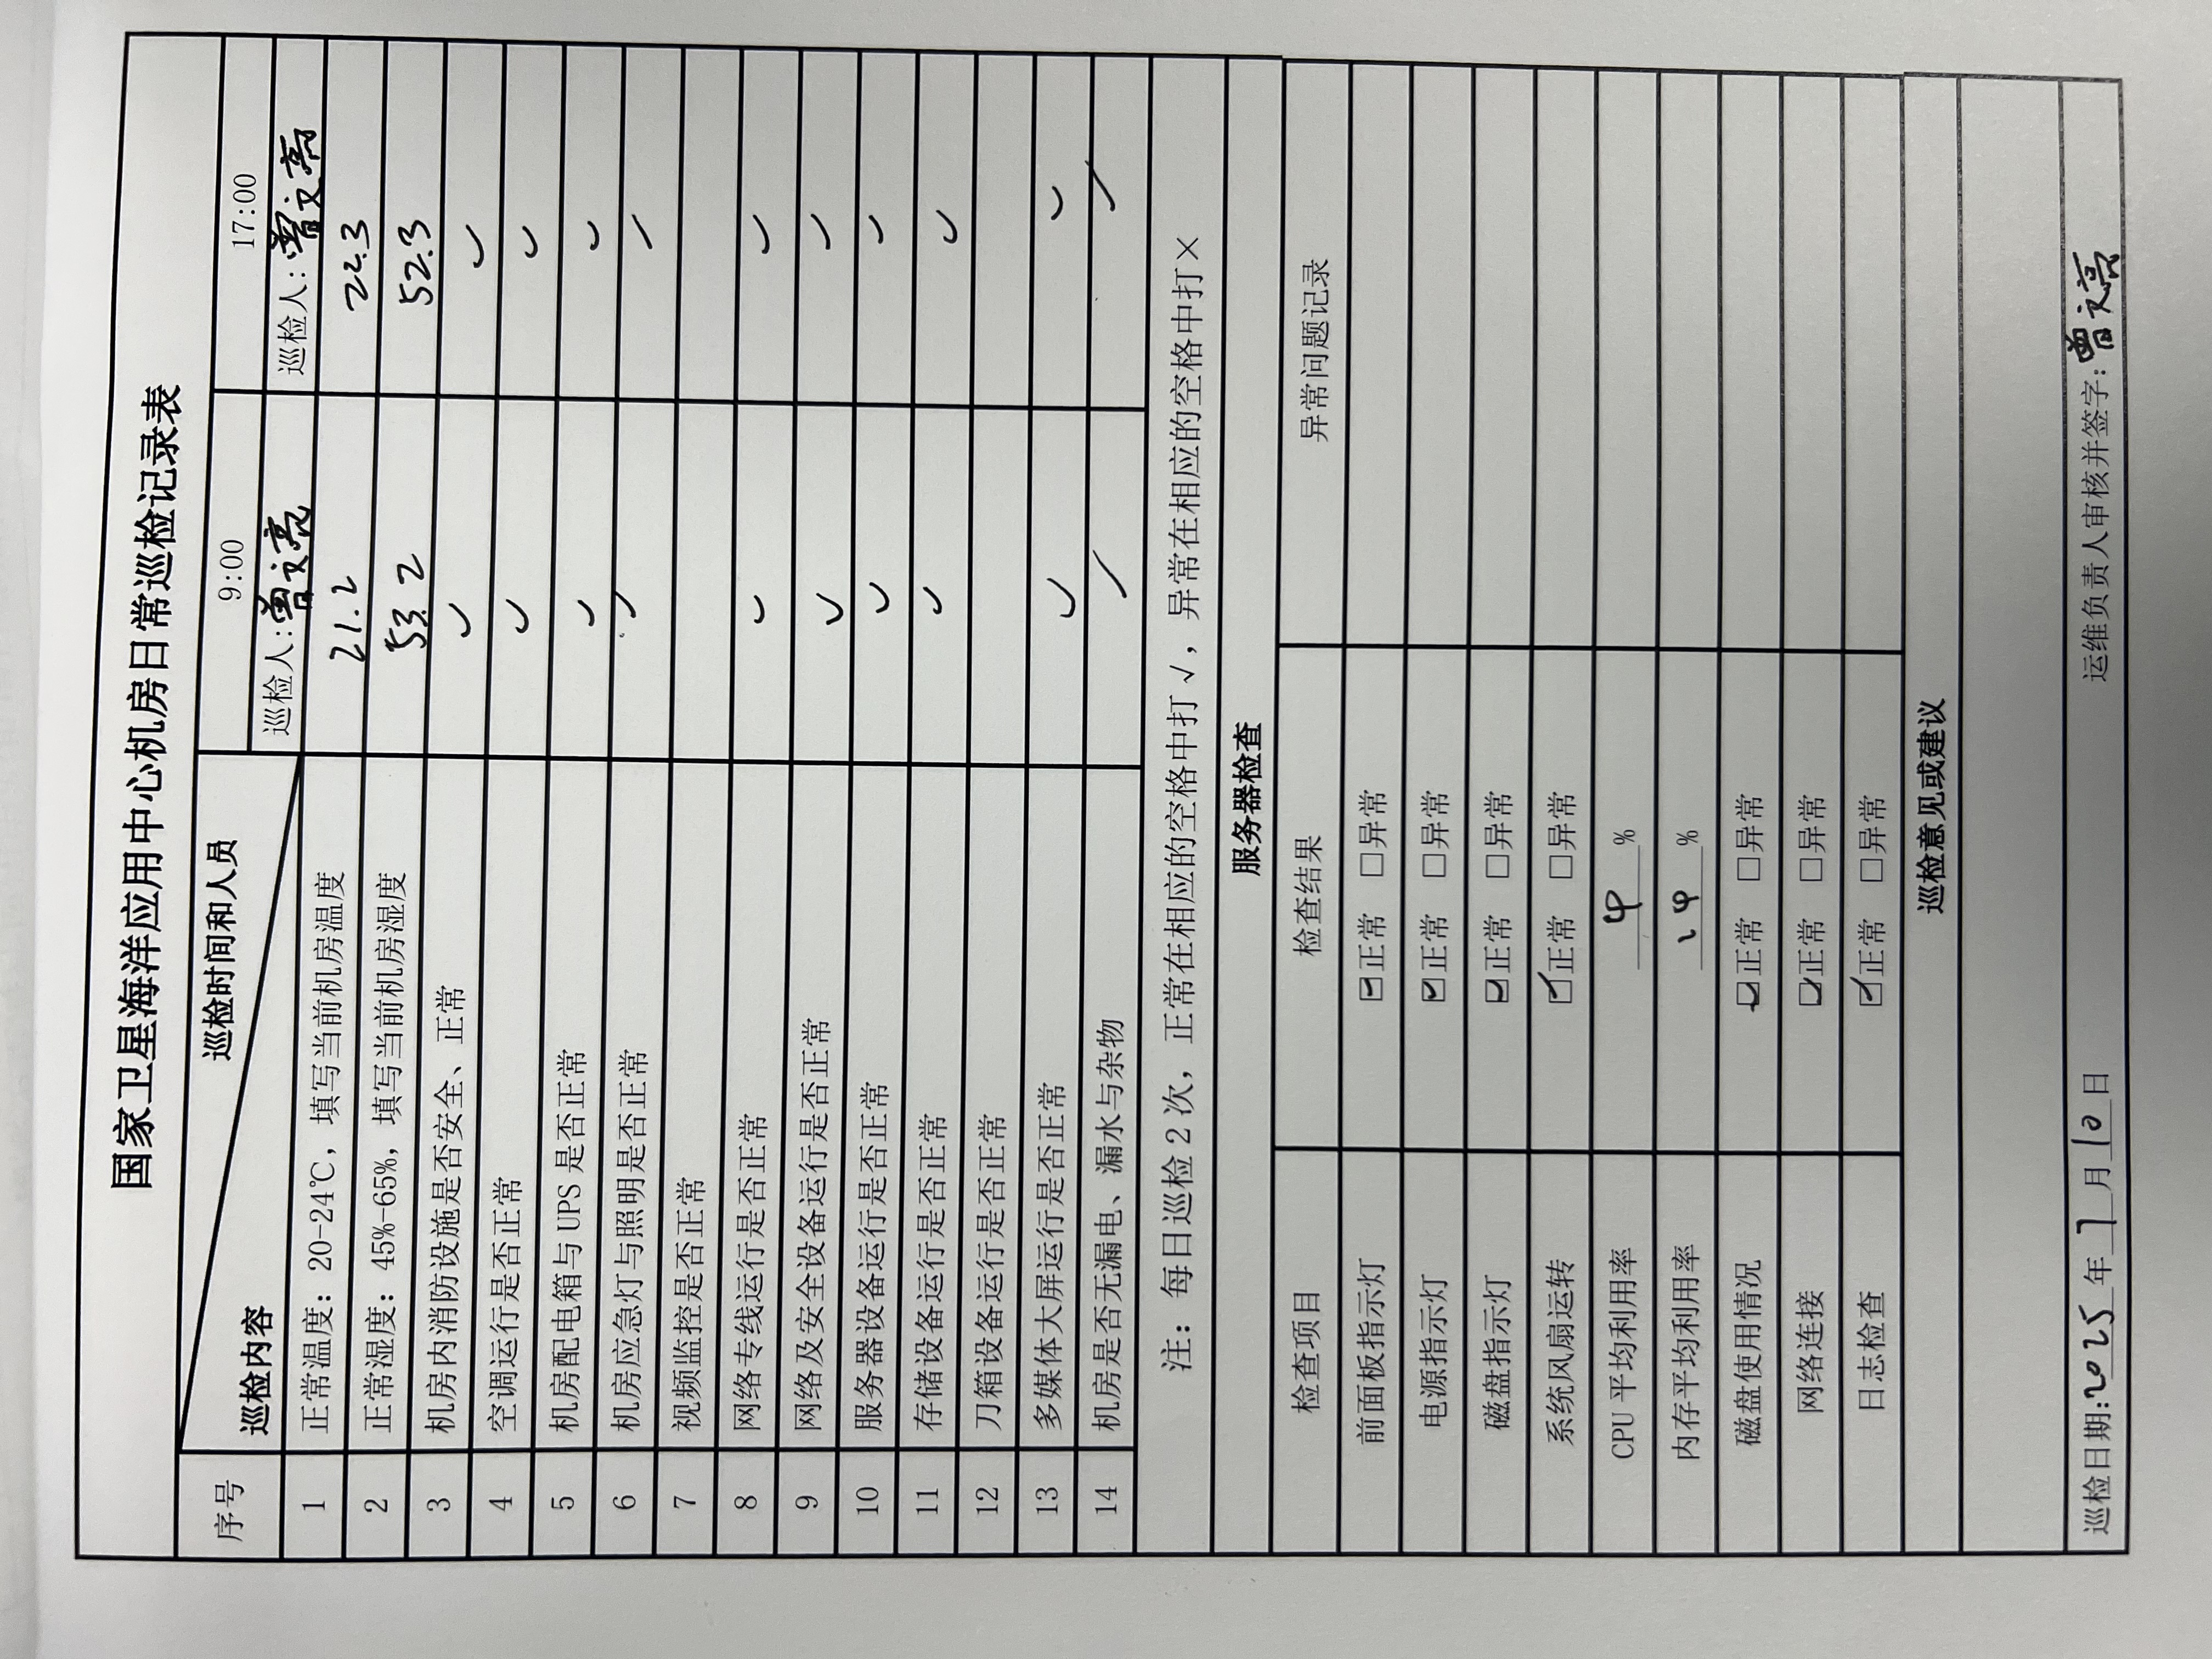 国家卫星海洋应用中心机房日常巡检记录表
序号 巡检内容 巡检时间和人员 9:00 17:00
巡检人:曾文亮 巡检人:曾文亮
1 正常温度：20-24℃，填写当前机房温度 21.2 22.3
2 正常湿度：45%-65%，填写当前机房湿度 53.2 52.3
3 机房内消防设施是否安全、正常 ✓ ✓
4 空调运行是否正常 ✓ ✓
5 机房配电箱与 UPS 是否正常 ✓ ✓
6 机房应急灯与照明是否正常 ✓ ✓
7 视频监控是否正常
8 网络专线运行是否正常 ✓ ✓
9 网络及安全设备运行是否正常 ✓ ✓
10 服务器设备运行是否正常 ✓ ✓
11 存储设备运行是否正常 ✓ ✓
12 刀箱设备运行是否正常
13 多媒体大屏运行是否正常 ✓ ✓
14 机房是否无漏电、漏水与杂物 ✓ ✓
注：每日巡检 2 次，正常在相应的空格中打 √，异常在相应的空格中打×
服务器检查
检查项目 检查结果 异常问题记录
前面板指示灯 ☑正常 □异常
电源指示灯 ☑正常 □异常
磁盘指示灯 ☑正常 □异常
系统风扇运转 ☑正常 □异常
CPU 平均利用率 4 %
内存平均利用率 14 %
磁盘使用情况 ☑正常 □异常
网络连接 ☑正常 □异常
日志检查 ☑正常 □异常
巡检意见或建议
巡检日期:2025年7月10日 运维负责人审核并签字:曾文亮